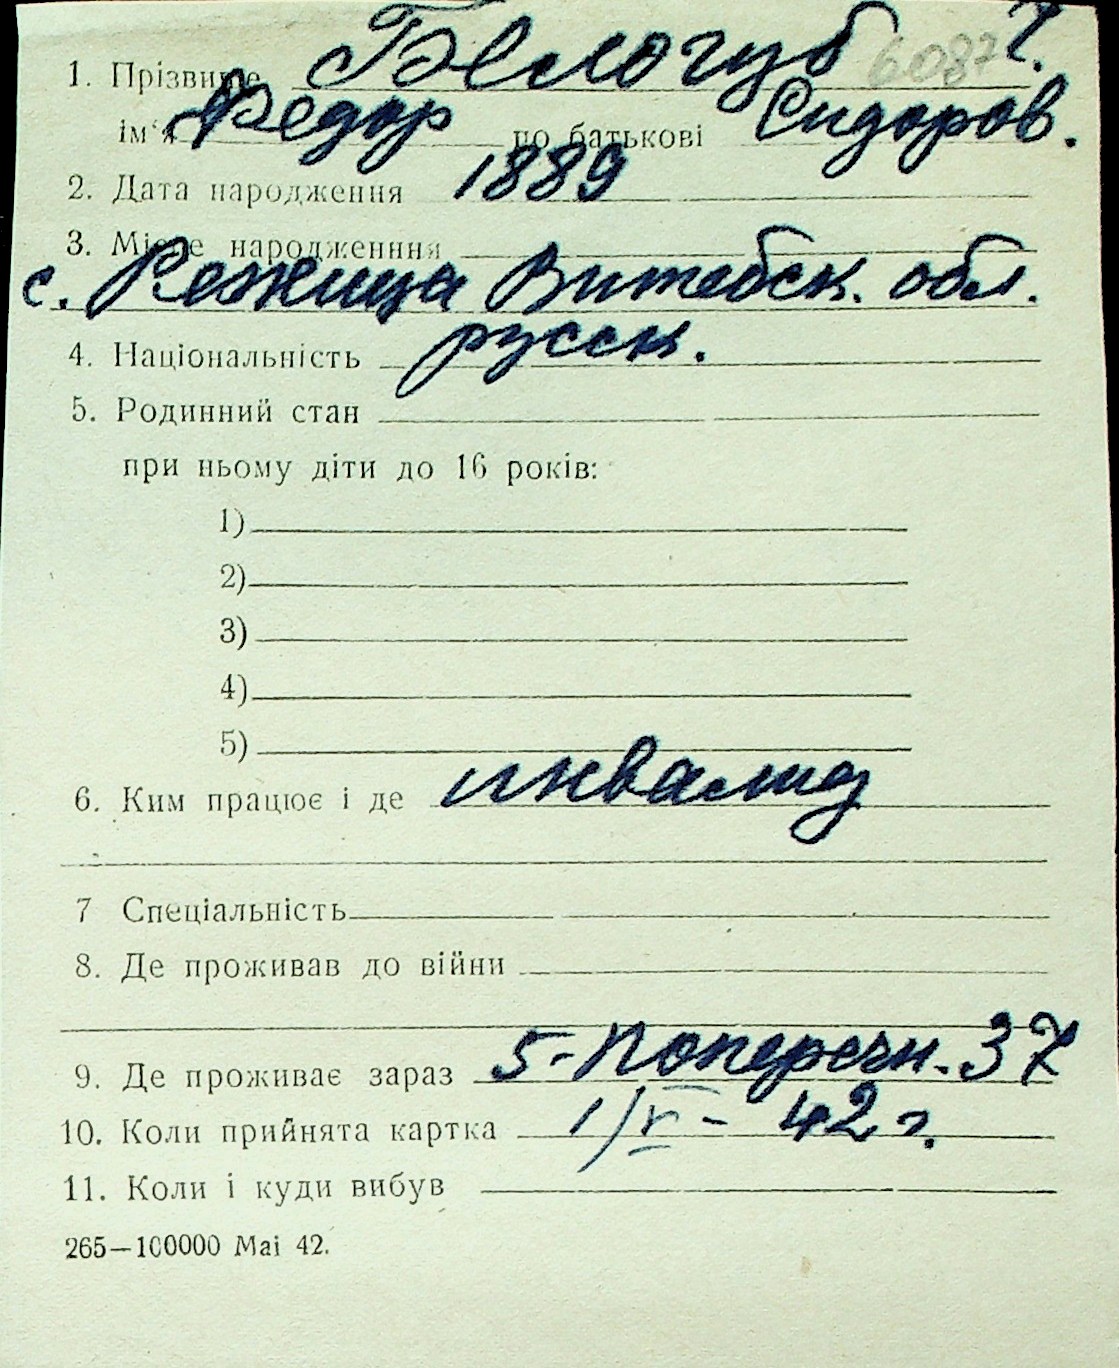 1. Прізвище Белогуб 6087 г.
ім'я Федор по батькові Сидоров.
2. Дата народження 1889
3. Місце народженння
с. Режица Витебск. обл.
4. Національність русск.
5. Родинний стан
при ньому діти до 16 років:
1)
2)
3)
4)
5)
6. Ким працює і де инвалид
7 Спеціальність
8. Де проживав до війни
9. Де проживає зараз 5-Поперечн. 37
10. Коли прийнята картка 1/V - 42 г.
11. Коли і куди вибув
265—100000 Mai 42.